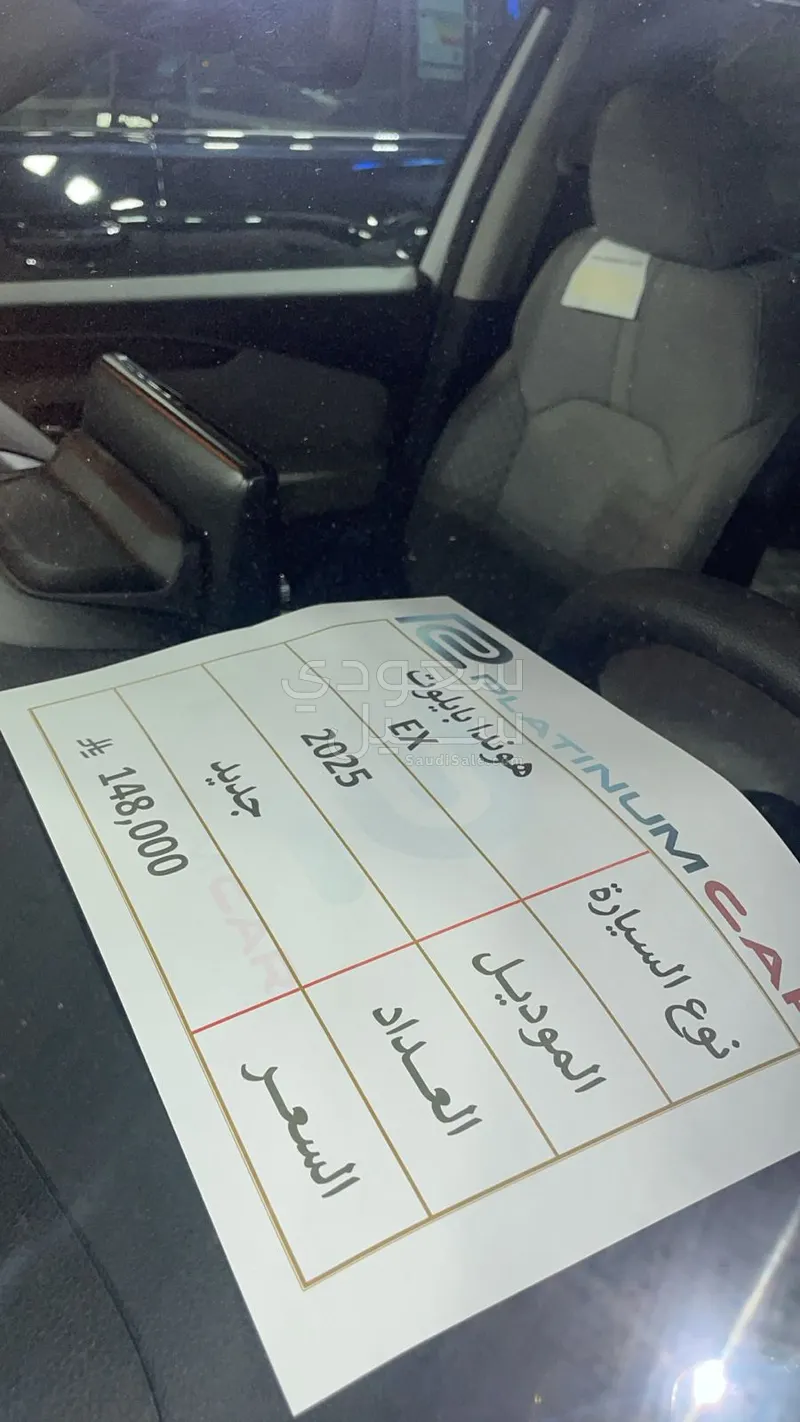 PLATINUM CAR
نوع السيارة هوندا بايلوت EX
الموديل 2025
العداد جديد
السعر 148,000 ⃁
سعودي سيل
SaudiSale.com